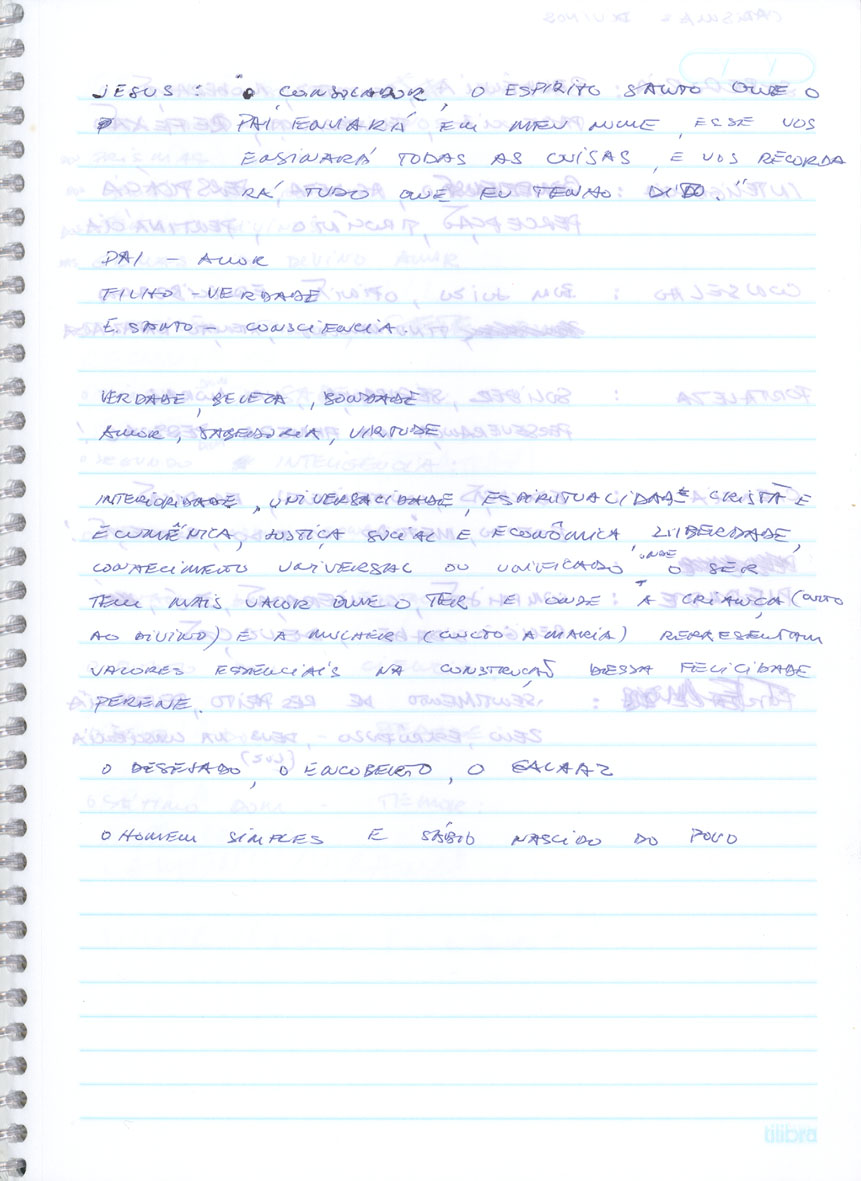 JESUS : "O CONSOLADOR, O ESPIRITO SANTO QUE O
PAI ENVIARÁ EM MEU NOME, ESSE VOS
ENSINARÁ TODAS AS COISAS, E VOS RECORDA
RÁ TUDO QUE EU TENHO DITO."
PAI - AMOR
FILHO - VERDADE
E. SANTO - CONSCIENCIA.
VERDADE, BELEZA, BONDADE
AMOR, SABEDORIA, VIRTUDE
INTERIORIDADE, UNIVERSALIDADE, ESPIRITUALIDADE CRISTÃ E
ECUMÊNICA, JUSTIÇA SOCIAL E ECONÔMICA, LIBERDADE,
CONHECIMENTO UNIVERSAL OU UNIFICADO, ONDE O SER
TEM MAIS VALOR QUE O TER E ONDE A CRIANÇA (CULTO
AO DIVINO) E A MULHER (CULTO A MARIA) REPRESENTAM
VALORES ESSENCIAIS NA CONSTRUÇÃO DESSA FELICIDADE
PERENE.
O DESEJADO, O ENCOBERTO, O GALAAZ
O HOMEM SIMPLES E SÁBIO NASCIDO DO POVO
tilibra